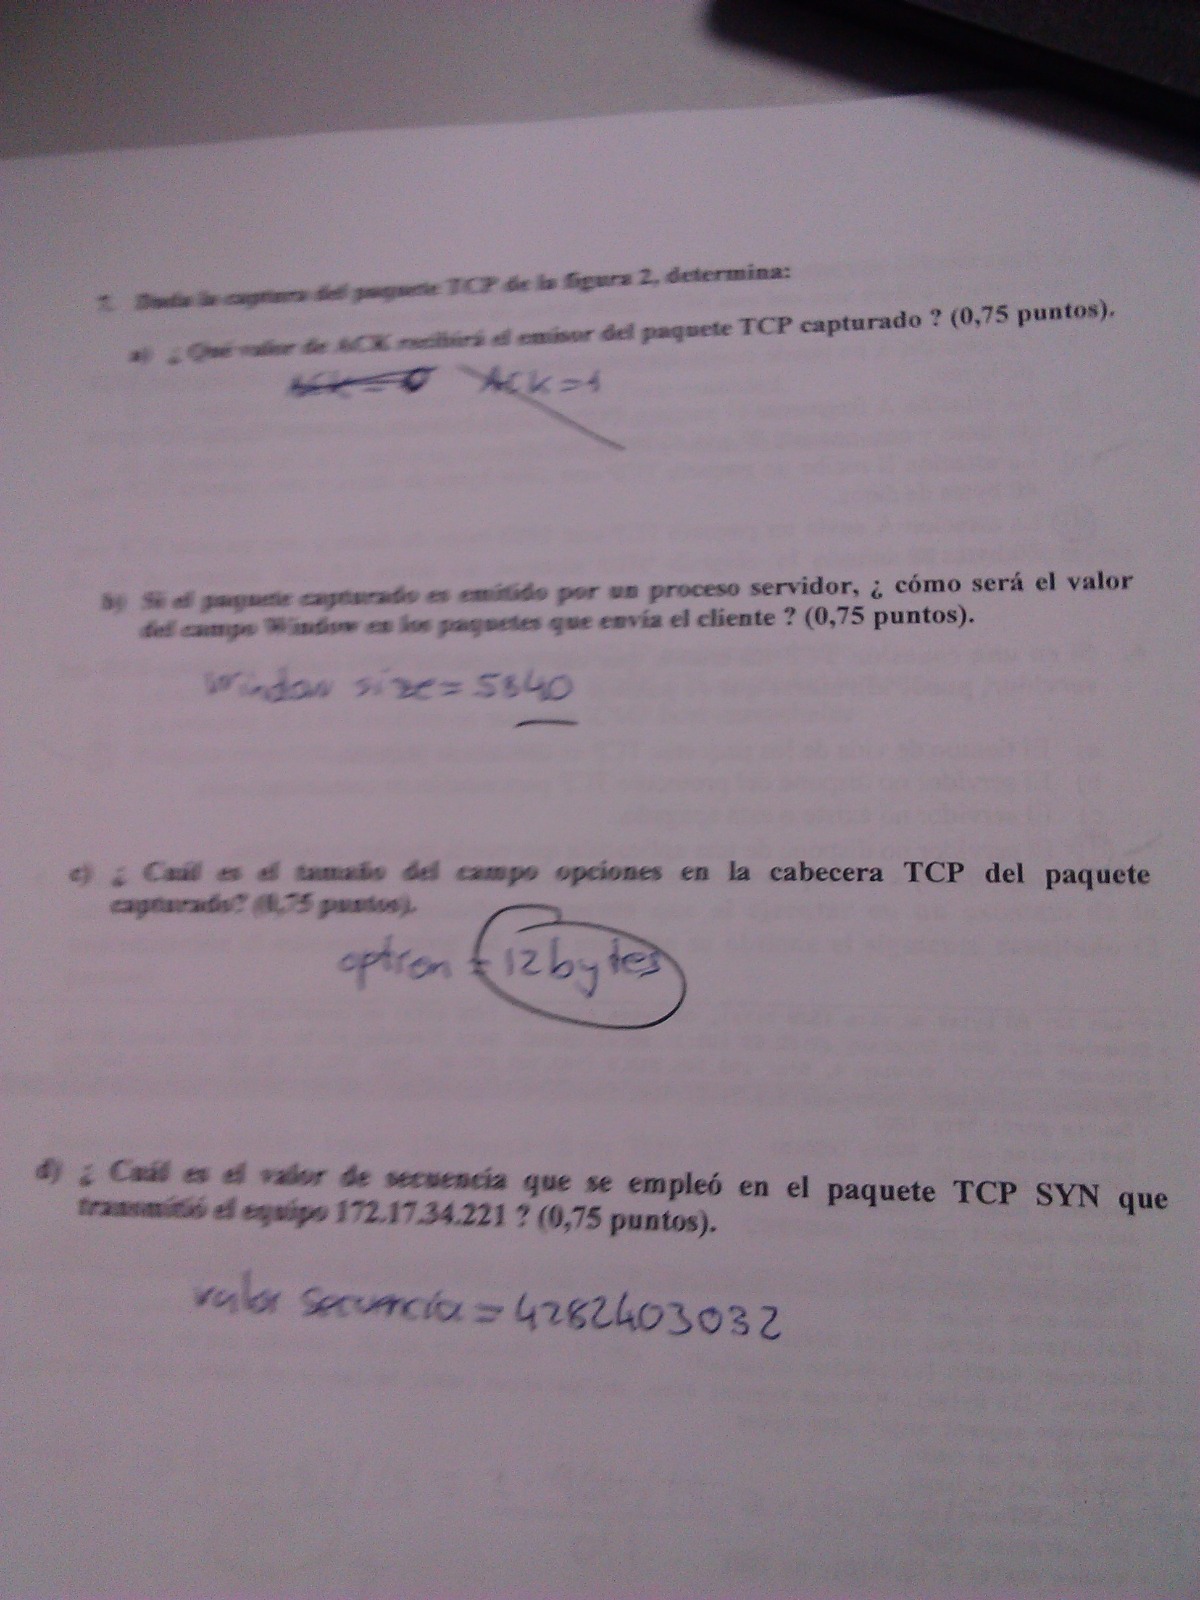 7. Dada la captura del paquete TCP de la figura 2, determina:
a) ¿ Qué valor de ACK recibirá el emisor del paquete TCP capturado ? (0,75 puntos).
ACK = 0 ACK = 1
b) Si el paquete capturado es emitido por un proceso servidor, ¿ cómo será el valor
del campo Window en los paquetes que envía el cliente ? (0,75 puntos).
Window size = 5840
c) ¿ Cuál es el tamaño del campo opciones en la cabecera TCP del paquete
capturado? (0,75 puntos).
option = 12 bytes
d) ¿ Cuál es el valor de secuencia que se empleó en el paquete TCP SYN que
transmitió el equipo 172.17.34.221 ? (0,75 puntos).
valor secuencia = 4282403032